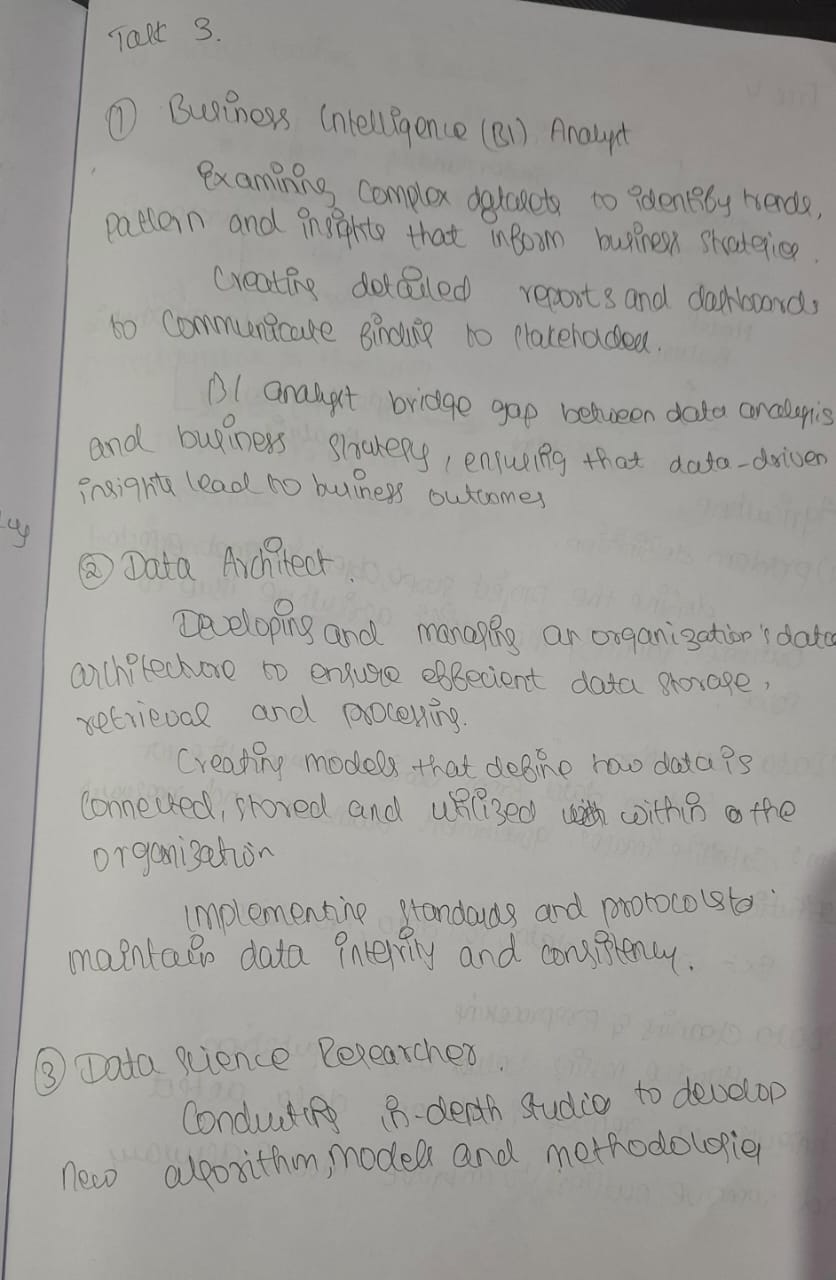 Task 3.
① Business Intelligence (BI) Analyst
Examining complex datasets to identify trends,
pattern and insights that inform business strategies.
Creating detailed reports and dashboards
to communicate finding to stakeholder.
BI analyst bridge gap between data analysis
and business strategy, ensuring that data-driven
insights lead to business outcomes
② Data Architect.
Developing and managing an organization's data
architecture to ensure effecient data storage,
retrieval and processing.
Creating models that define how data is
connected, stored and utilized with within the
organization
Implementing standards and protocols to
maintain data integrity and consistency.
③ Data Science Researcher.
Conducting in-depth studies to develop
new algorithm, models and methodologies